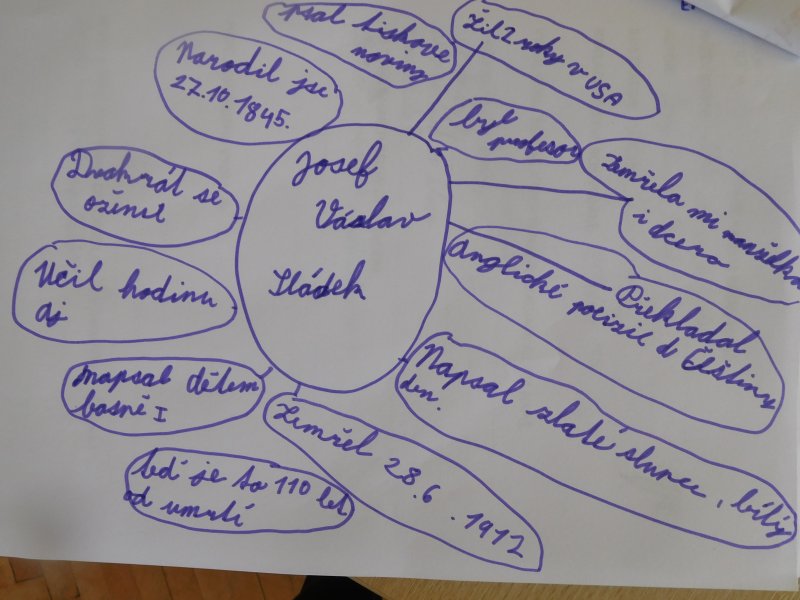 Josef
Václav
Sládek
psal tiskove
noviny
Žil 2 roky v USA
byl
profesor
Zemřela mi manželka
i dcera
Překládal
anglické poezie do Češtiny
Napsal zlaté slunce, bílý
den.
Zemřel 28.6.1912
teď je to 110 let
od umrtí
napsal dětem
básně I
Učil hodinu
aj
Dvakrát se
oženil
Narodil jse
27.10.1845.